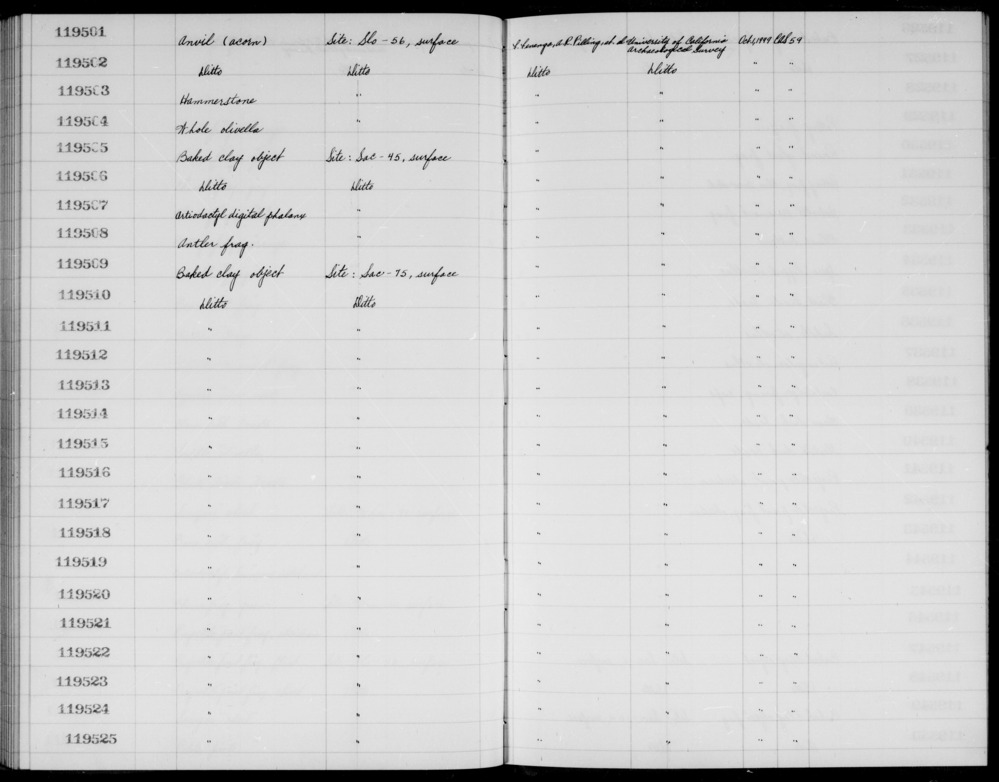 119501 Anvil (acorn) Site: Slo-56, surface A.R. Pilling, et. al. University of California Archaeological Survey Oct 1, 1949 54
119502 Ditto Ditto Ditto Ditto " "
119503 Hammerstone " " " " "
119504 Whole olivella " " " " "
119505 Baked clay object Site: Sac-45, surface " " " "
119506 Ditto Ditto " " " "
119507 Artiodactyl digital phalanx " " " " "
119508 Antler frag. " " " " "
119509 Baked clay object Site: Sac-75, surface " " " "
119510 Ditto Ditto " " " "
119511 " " " " " "
119512 " " " " " "
119513 " " " " " "
119514 " " " " " "
119515 " " " " " "
119516 " " " " " "
119517 " " " " " "
119518 " " " " " "
119519 " " " " " "
119520 " " " " " "
119521 " " " " " "
119522 " " " " " "
119523 " " " " " "
119524 " " " " " "
119525 " " " " " "